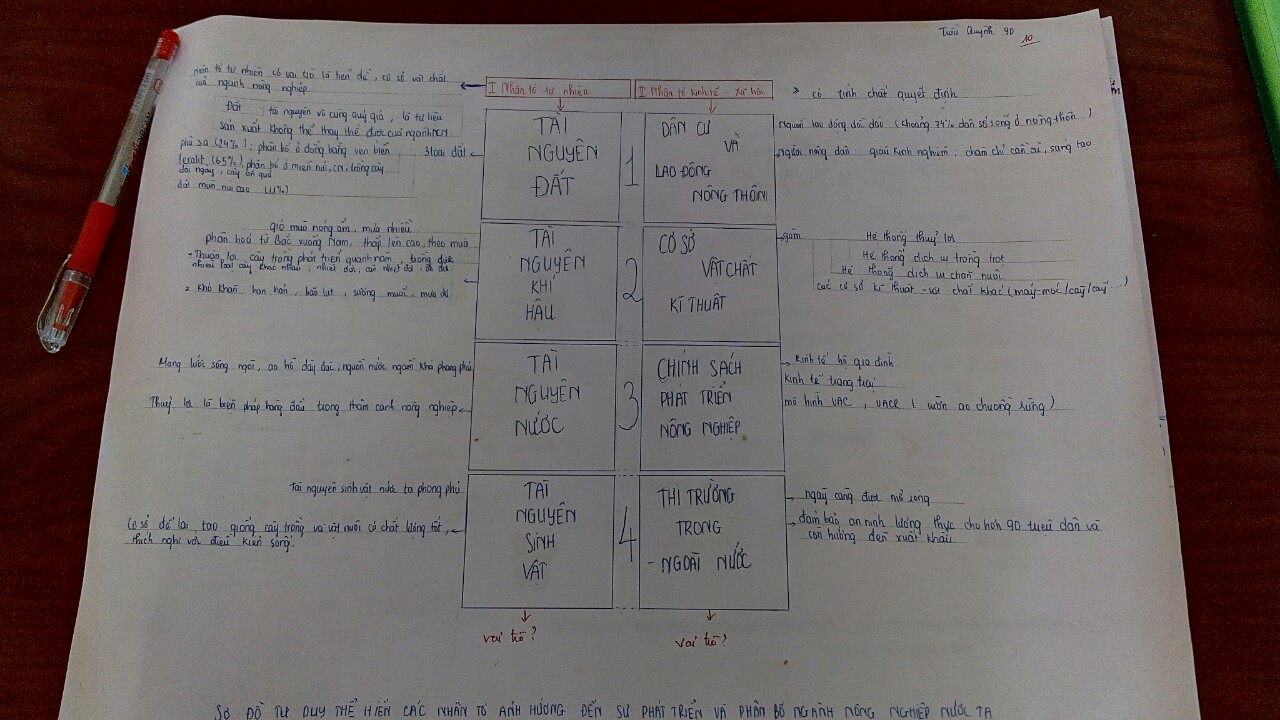 Quỳnh 9D
10
nhân tố tự nhiên có vai trò là tiền đề, cơ sở vật chất
của ngành nông nghiệp
I Nhân tố tự nhiên
I Nhân tố kinh tế - xã hội
có tính chất quyết định
Đất tài nguyên vô cùng quý giá, là tư liệu
sản xuất không thể thay thế được của ngành NN
phù sa (24%): phân bố ở đồng bằng ven biển
3 loại đất
feralit (65%) phân bố ở miền núi, CN, trồng cây
dài ngày, cây ăn quả
đất mùn núi cao (11%)
TÀI
NGUYÊN
ĐẤT
1
DÂN CƯ
VÀ
LAO ĐỘNG
NÔNG THÔN
Người lao động dồi dào (khoảng 74% dân số sống ở nông thôn)
Người nông dân: giàu kinh nghiệm, chăm chỉ cần cù, sáng tạo
gió mùa nóng ẩm, mưa nhiều
phân hoá từ Bắc xuống Nam, thấp lên cao, theo mùa
Thuận lợi cây trồng phát triển quanh năm, trồng được
nhiều loại cây khác nhau, nhiệt đới, cận nhiệt đới, ôn đới
Khó khăn hạn hán, bão lụt, sương muối, mưa đá
TÀI
NGUYÊN
KHÍ
HẬU
2
CƠ SỞ
VẬT CHẤT
KĨ THUẬT
gồm
Hệ thống thuỷ lợi
Hệ thống dịch vụ trồng trọt
Hệ thống dịch vụ chăn nuôi
Các cơ sở kĩ thuật - vật chất khác (máy móc/cày/cấy...)
Mạng lưới sông ngòi, ao hồ dày đặc, nguồn nước ngầm khá phong phú
Thuỷ lợi là biện pháp hàng đầu trong thâm canh nông nghiệp
TÀI
NGUYÊN
NƯỚC
3
CHÍNH SÁCH
PHÁT TRIỂN
NÔNG NGHIỆP
Kinh tế hộ gia đình
Kinh tế trang trại
mô hình VAC, VACR (vườn ao chuồng rừng)
Tài nguyên sinh vật nước ta phong phú
Cơ sở để lai, tạo giống cây trồng và vật nuôi có chất lượng tốt,
thích nghi với điều kiện sống.
TÀI
NGUYÊN
SINH
VẬT
4
THỊ TRƯỜNG
TRONG
- NGOÀI NƯỚC
ngày càng được mở rộng
đảm bảo an ninh lương thực cho hơn 90 triệu dân và
còn hướng đến xuất khẩu
vai trò?
vai trò?
SƠ ĐỒ TƯ DUY THỂ HIỆN CÁC NHÂN TỐ ẢNH HƯỞNG ĐẾN SỰ PHÁT TRIỂN VÀ PHÂN BỐ NGÀNH NÔNG NGHIỆP NƯỚC TA